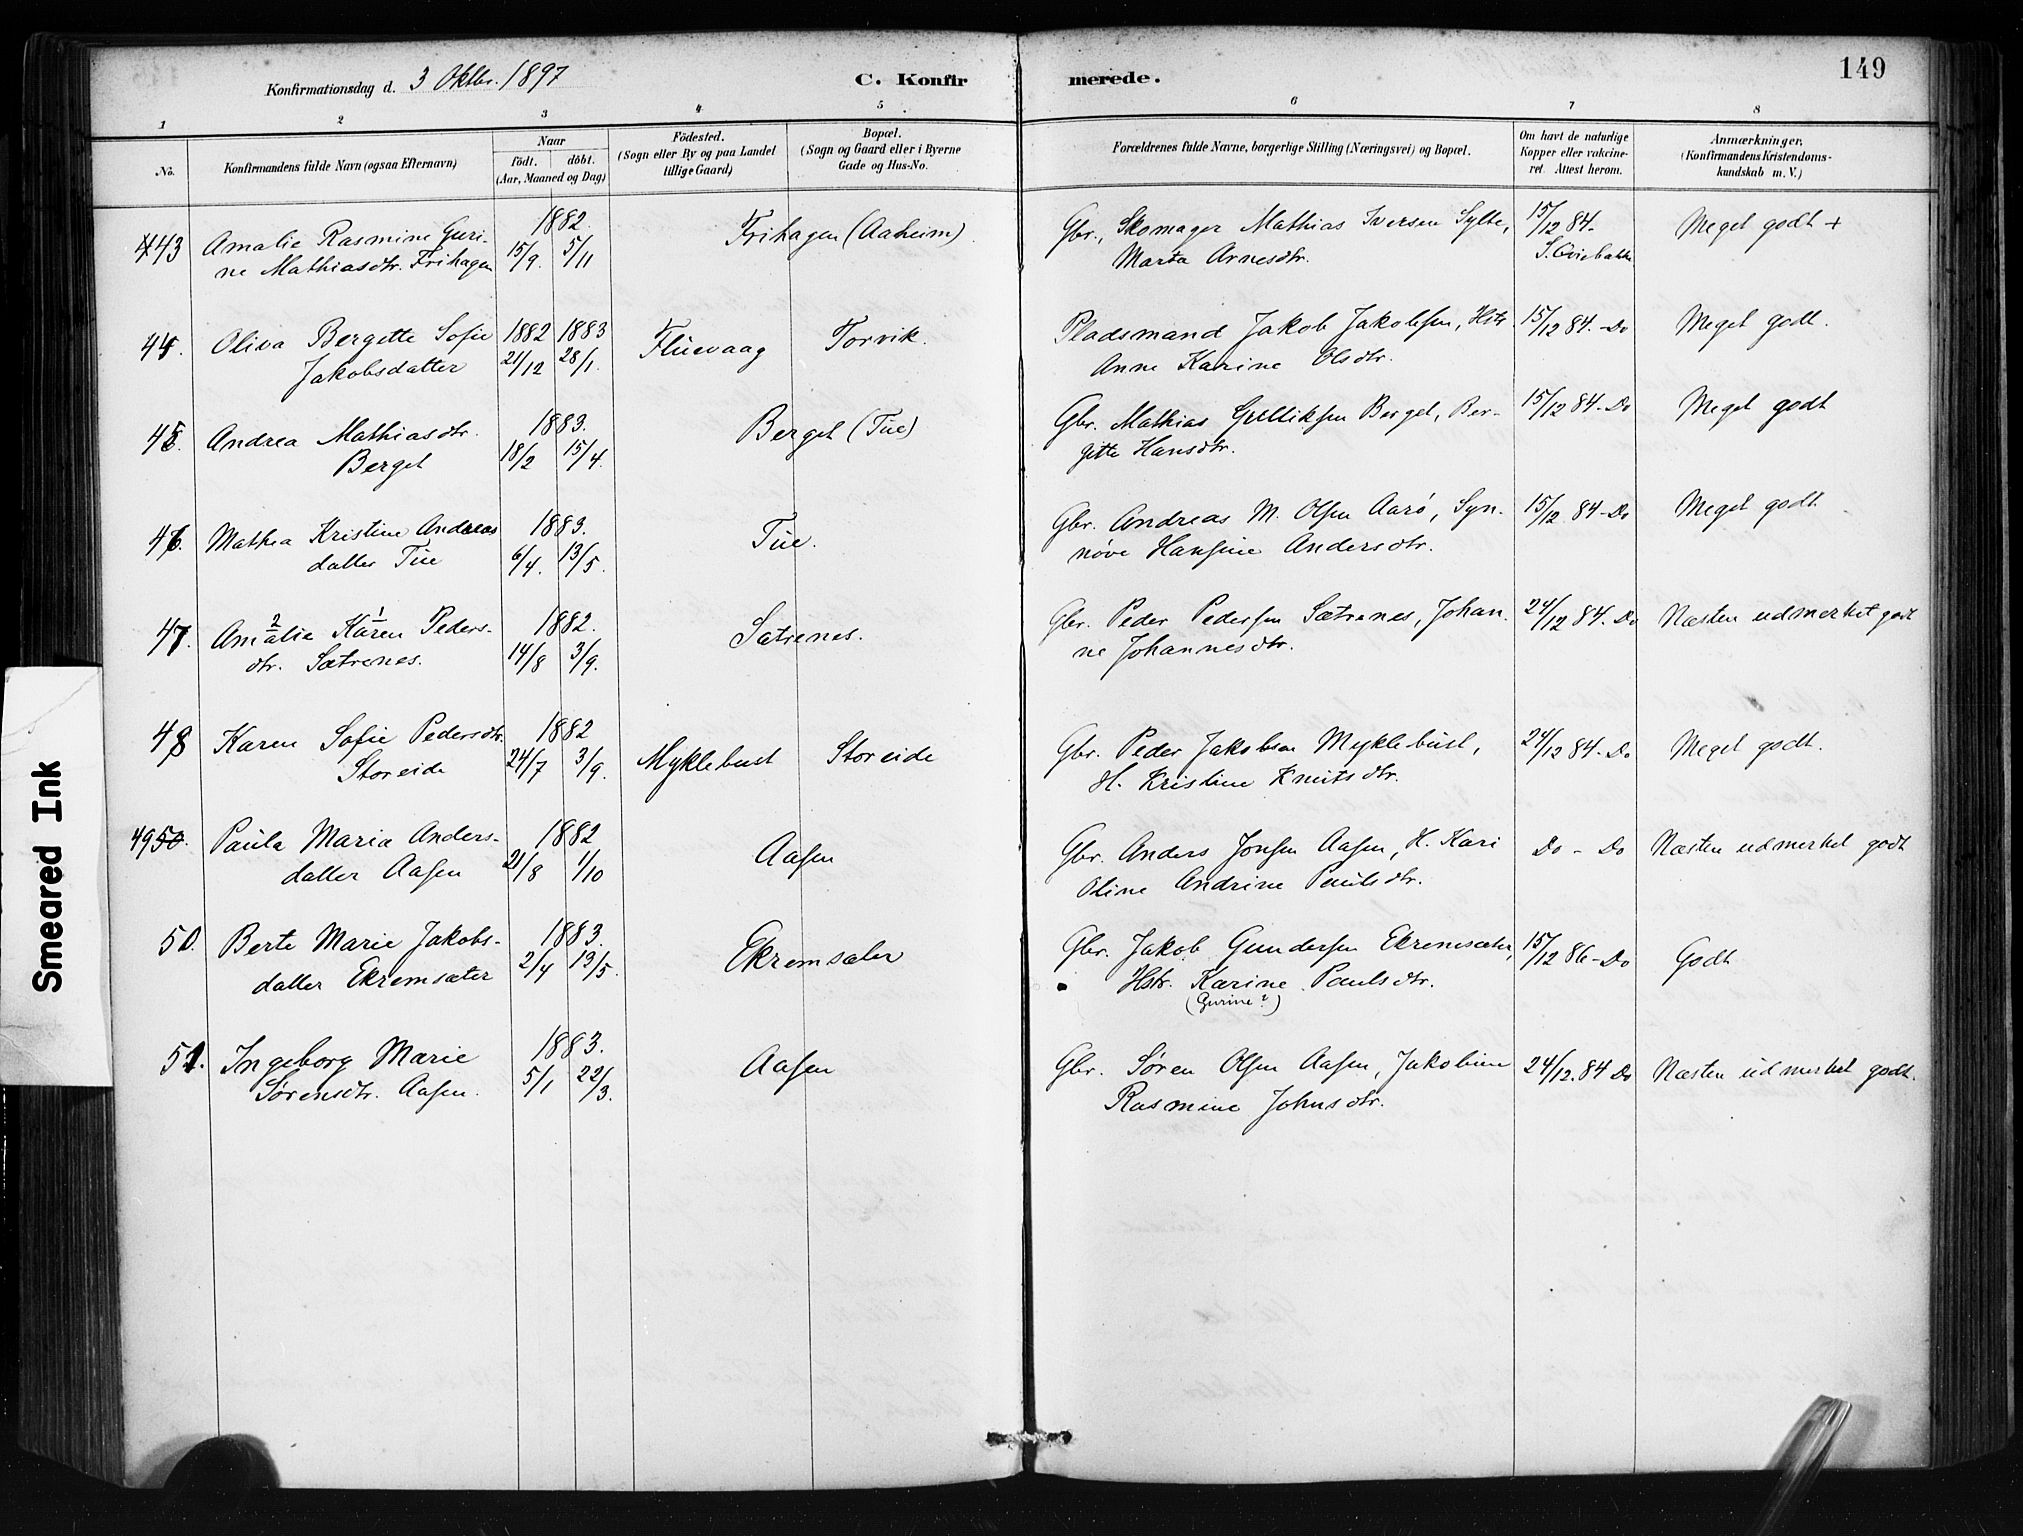 Konfirmationsdag d. 3 Oktbr. 1897
C. Konfirmerede.
149
1 2 3 4 5 6 7 8
No.
Konfirmandens fulde Navn (ogsaa Efternavn)
Naar
födt. döbt.
(Aar, Maaned og Dag)
Födested.
(Sogn eller By og paa Landet
tillige Gaard)
Bopæl.
(Sogn og Gaard eller i Byerne
Gade og Hus-No.
Forældrenes fulde Navne, borgerlige Stilling (Næringsvei) og Bopæl.
Om havt de naturlige
Kopper eller vakcine-
ret. Attest herom.
Anmærkninger.
(Konfirmandens Kristendoms-
kundskab m. V.)
43 Amalie Rasmine Guri- 1882. Frihagen (Aaheim) Gbr., Skomager Mathias Iversen Sylte, 15/12 84- Meget godt +
ne Mathiasdtr. Frihagen 15/9. 5/11 Marta Arnesdtr.
44. Oliva Bergitte Sofie 1882 1883 Fluevaag Torvik. Pladsmand Jakob Jakobsen, Hstr. 15/12 84.-Do Meget godt.
Jakobsdatter 21/12 28/1. Anne Karine Olsdtr.
45. Andrea Mathiasdtr. 1883. Berget (Tue) Gbr. Mathias Gulliksen Berget, Ber- 15/12 84-Do Meget godt
Berget 18/2 15/4. gitte Hansdtr.
46. Mathea Kristine Andreas 1883. Tue. Gbr. Andreas M. Olsen Aarø, Syn- 15/12 84-Do Meget godt.
datter Tue 6/4. 13/5. nøve Hansine Andersdtr.
47. Amalie 2 Karen 1 Peders- 1882. Sætrenes. Gbr. Peder Pedersen Sætrenes, Johan- 24/12 84. Do Næsten udmerket godt
dtr. Sætrenes. 14/8 3/9. ne Johannesdtr.
48 Karen Sofie Pedersdtr. 1882 Myklebust Storeide Gbr. Peder Jakobsen Myklebust, 24/12 84-Do Meget godt.
Storeide 24/7 3/9. H. Kristine Knutsdtr.
49 50. Paula Maria Anders- 1882 Aasen Gbr. Anders Jonsen Aasen, H. Kari Do - Do Næsten udmerket godt
datter Aasen 21/8 1/10 Oline Andrine Paulsdtr.
50. Berte Marie Jakobs- 1883. Ekremsæter Gbr. Jakob Gundersen Ekremsæter, 15/12 86-Do Godt
datter Ekremsæter 2/4 13/5. Hstr. Karine Paulsdtr.
(Gurine?)
51. Ingeborg Marie 1883. Aasen Gbr. Søren Olsen Aasen, Jakobine 24/12. 84 Do Næsten udmerket godt.
Sørensdtr. Aasen. 5/1 22/3. Rasmine Johnsdtr.
Smeared Ink